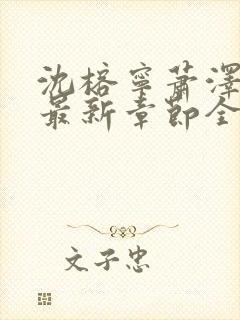 沈榕寧蕭澤
最新章節全
文子忠